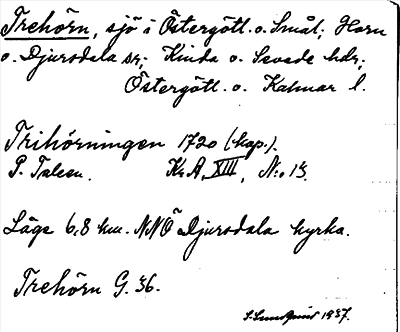 Trehörn, sjö i Östergötl. o. Smål., Horn
o. Djursdala sr; Kinda o. Sevede hdr;
Östergötl. o. Kalmar l.
Trihörningen 1720 (kop.).
P. Taleen. Kr. A, XIII, N:o 15.
Läge 6,8 km. NNÖ Djursdala kyrka.
Trehörn G. 36.
S. Lundquist 1937.